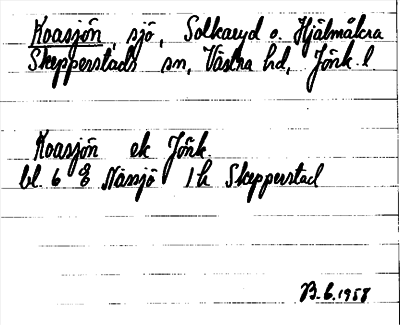 Koasjön, sjö, Solkaryd o. Hjälmåkra
Skepperstads sn, Västra hd, Jönk. l.
Koasjön ek Jönk.
bl. 6 8 Nässjö 1 h Skepperstad
B. 6. 1958